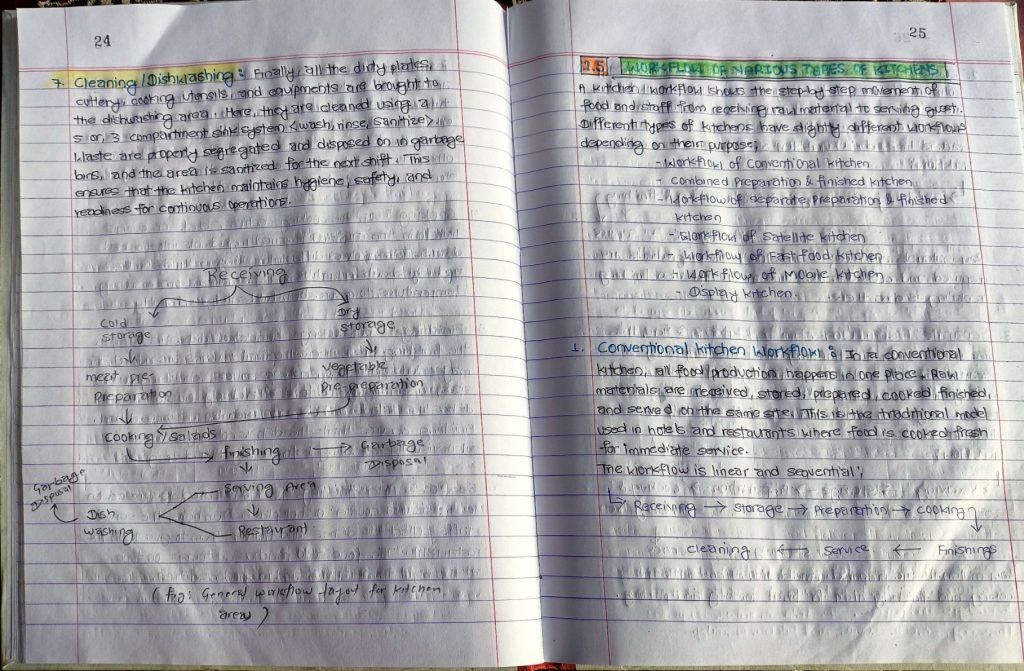 24
7. Cleaning/Dishwashing: Finally, all the dirty plates,
cutlery, cooking utensils and equipments are brought to
the dishwashing area. Here, they are cleaned using a
s or 3 compartment sink system <wash, rinse, sanitize>.
Waste are properly segregated and disposed on in garbage
bins, and the area is sanitized for the next shift. This
ensures that the kitchen maintains hygiene, safety, and
readiness for continuous operations.
Receiving
Cold
storage
Dry
storage
meat pre-
preparation
vegetable
pre-preparation
Cooking/salads
finishing → Garbage
Disposal
Garbage
Disposal
Serving Area
Dish
washing
Restaurant
(fig: General workflow layout for kitchen
area)
25
2.5 WORKFLOW OF VARIOUS TYPES OF KITCHENS
A kitchen workflow shows the step by step movement of
food and staff from receiving raw material to serving guest.
Different types of kitchens have slightly different workflows
depending on their purpose;
- Workflow of conventional kitchen
- Combined preparation & finished kitchen
- Workflow of separate, preparation & finished
kitchen
- Workflow of satellite kitchen
- Workflow of Fast food kitchen
- Workflow of Mobile kitchen
- Display kitchen.
1. Conventional kitchen Workflow: In a conventional
kitchen, all food production happens in one place. Raw
materials are received, stored, prepared, cooked, finished,
and served on the same site. This is the traditional model
used in hotels and restaurants where food is cooked fresh
for immediate service.
The workflow is linear and sequential;
↳ Receiving → storage → Preparation → cooking
cleaning ← service ← Finishings